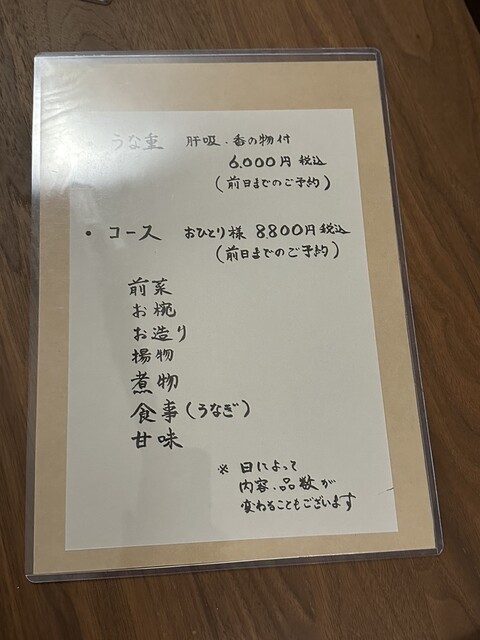 ・ うな重 肝吸、香の物付
6.000円 税込
(前日までのご予約)
・ コース おひとり様 8800円 税込
(前日までのご予約)
前菜
お椀
お造り
揚物
煮物
食事(うなぎ)
甘味
※ 日によって
内容、品数が
変わることもございます